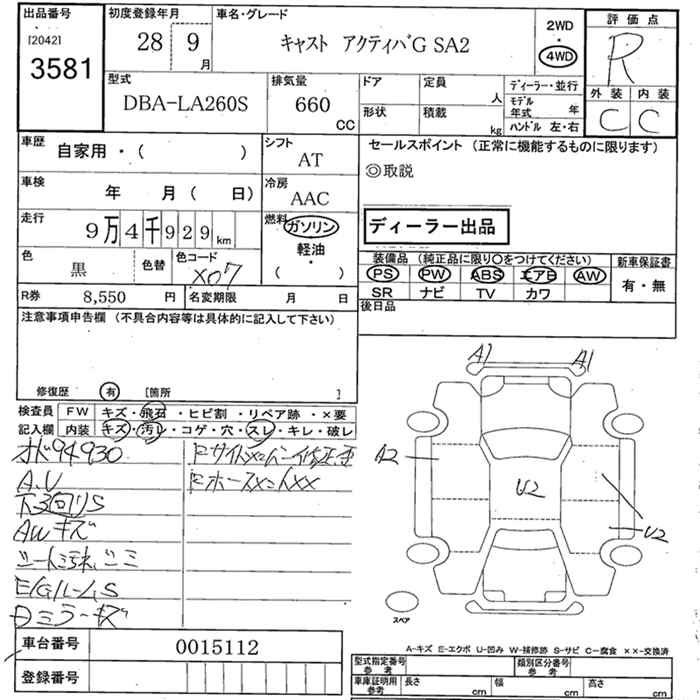 出品番号 [2042] 3581
初度登録年月 28 9月
車名・グレード キャスト アクティバG SA2
2WD 4WD
評価点 R
外装 C 内装 C
型式 DBA-LA260S
排気量 660 CC
ドア 形状
定員 人 積載 kg
ディーラー・並行
モデル年式 年
ハンドル 左・右
車歴 自家用・( )
シフト AT
セールスポイント(正常に機能するものに限ります)
◎取説
車検 年 月( 日)
冷房 AAC
走行 9万4千929km
燃料 ガソリン 軽油 ( ・ )
ディーラー出品
色 黒 色替 色コード X07
装備品(純正品に限り○をつけてください)
PS PW ABS エアB AW
SR ナビ TV カワ
新車保証書 有・無
R券 8,550円 名変期限 月 日
後日品
注意事項申告欄(不具合内容等は具体的に記入して下さい)
修復歴 有 [箇所 ]
検査員記入欄
FW キズ・飛石・ヒビ割・リペア跡・×要
内装 キズ・汚レ・コゲ・穴・スレ・キレ・破レ
オド94930
A.U
下回りS
AWキズ
シート汚れ、シミ
E/Gルーム S
A1 A1
A2
U2
U2
スペア
A-キズ E-エクボ U-凹み W-補修跡 S-サビ C-腐食 ××-交換済
車台番号 0015112
登録番号
型式指定番号 参考
類別区分番号 参考
車庫証明用 参考 長さ cm 幅 cm 高さ cm